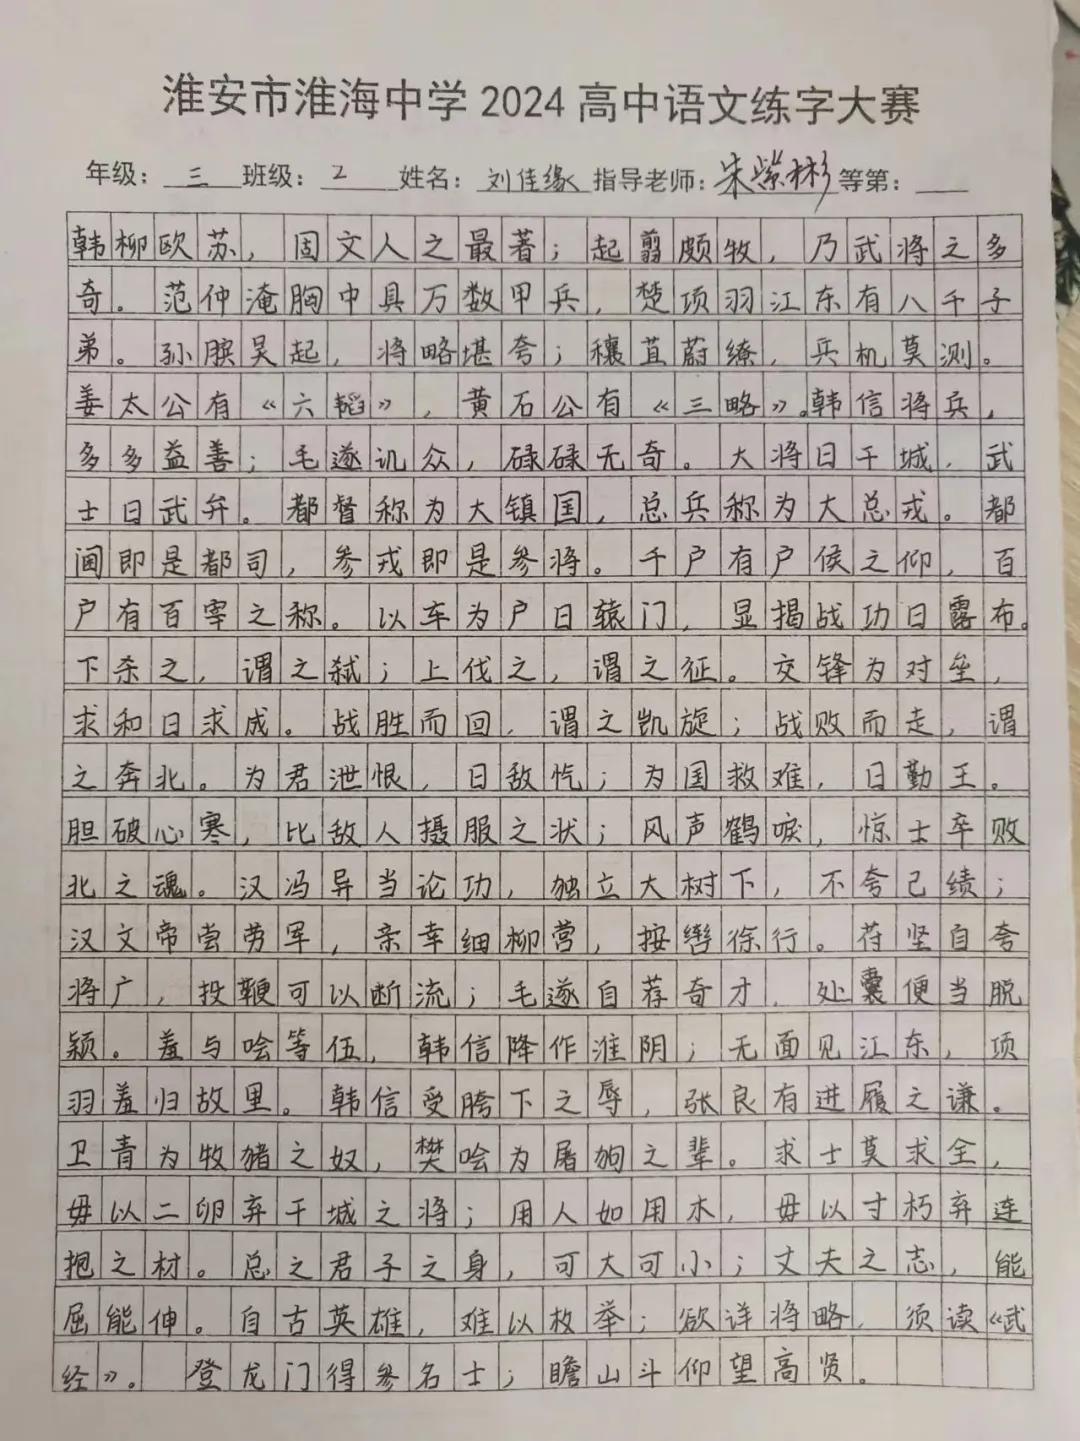 淮安市淮海中学2024高中语文练字大赛
年级：三 班级：2 姓名：刘佳缘 指导老师：朱紫彬 等第：
韩柳欧苏，固文人之最著；起翦颇牧，乃武将之多
奇。范仲淹胸中具万数甲兵，楚项羽江东有八千子
弟。孙膑吴起，将略堪夸；穰苴蔚缭，兵机莫测。
姜太公有《六韬》，黄石公有《三略》。韩信将兵，
多多益善；毛遂讥众，碌碌无奇。大将曰干城，武
士曰武弁。都督称为大镇国，总兵称为大总戎。都
阃即是都司，参戎即是参将。千户有户侯之仰，百
户有百宰之称。以车为户曰辕门，显揭战功曰露布。
下杀之，谓之弑；上伐之，谓之征。交锋为对垒，
求和曰求成。战胜而回，谓之凯旋；战败而走，谓
之奔北。为君泄恨，曰敌忾；为国救难，曰勤王。
胆破心寒，比敌人摄服之状；风声鹤唳，惊士卒败
北之魂。汉冯异当论功，独立大树下，不夸己绩；
汉文帝尝劳军，亲幸细柳营，按辔徐行。苻坚自夸
将广，投鞭可以断流；毛遂自荐奇才，处囊便当脱
颖。羞与哙等伍，韩信降作淮阴；无面见江东，项
羽羞归故里。韩信受胯下之辱，张良有进履之谦。
卫青为牧猪之奴，樊哙为屠狗之辈。求士莫求全，
毋以二卵弃干城之将；用人如用木，毋以寸朽弃连
抱之材。总之君子之身，可大可小；丈夫之志，能
屈能伸。自古英雄，难以枚举；欲详将略，须读《武
经》。登龙门得参名士；瞻山斗仰望高贤。